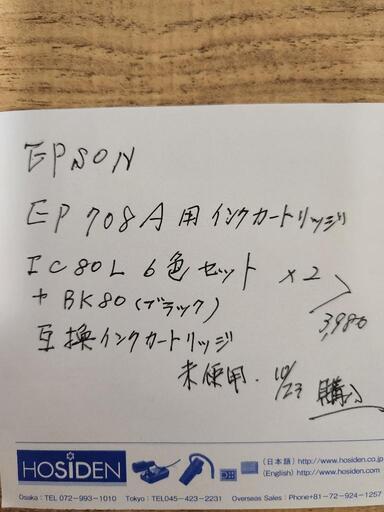 EPSON
EP708A用インクカートリッジ
IC80L 6色セット ×2
+BK80(ブラック)
3,980
互換インクカートリッジ
未使用. 10/23 購入
HOSIDEN
(日本語) http://www.hosiden.co.jp
(English) http://www.hosiden.com
Osaka : TEL 072-993-1010 Tokyo : TEL045-423-2231 Overseas Sales : Phone+81-72-924-1257